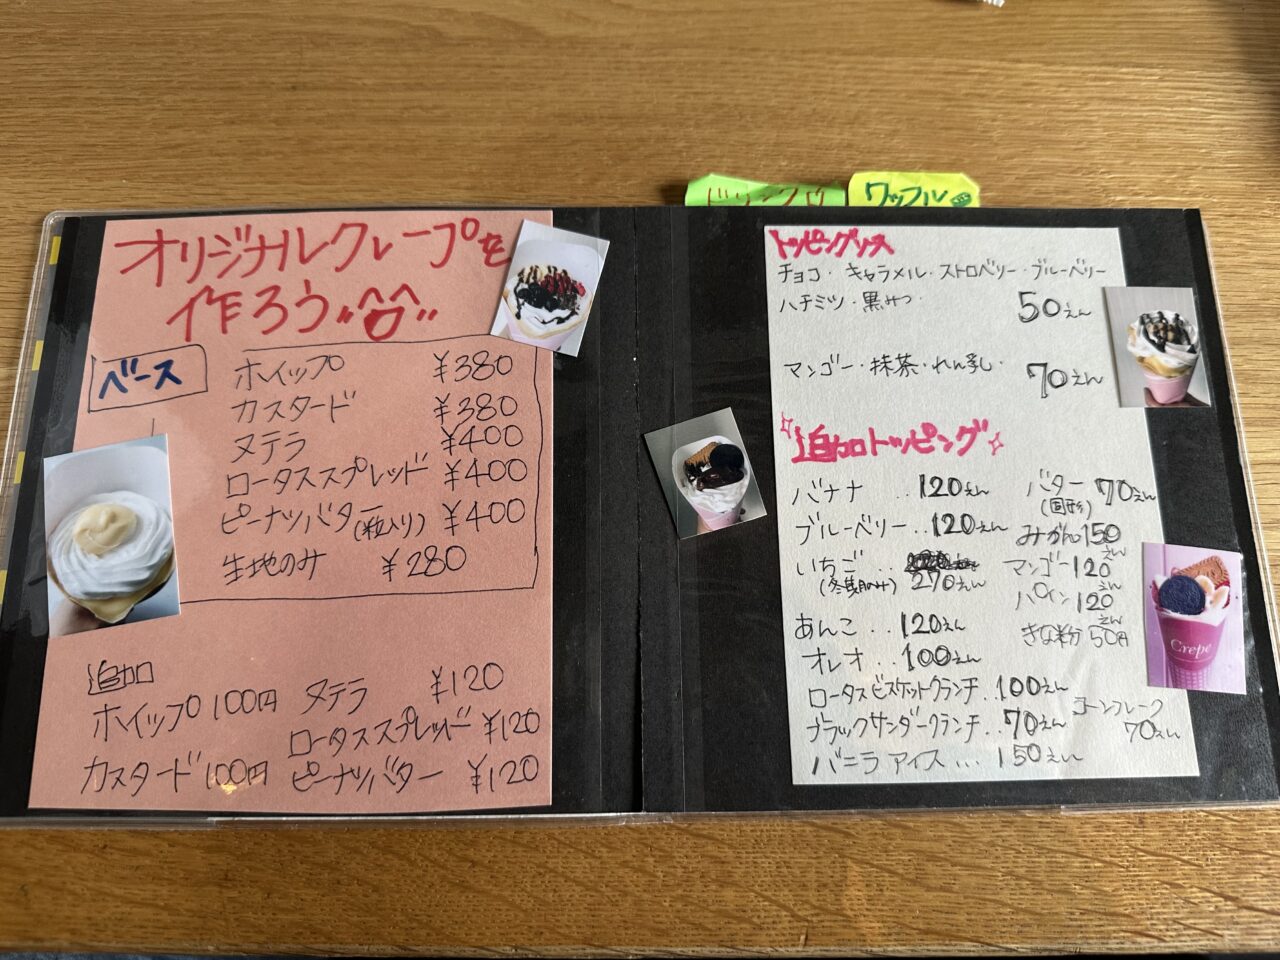 ドリンク
ワッフル
オリジナルクレープを
作ろう
ベース
ホイップ ¥380
カスタード ¥380
ヌテラ ¥400
ロータススプレッド ¥400
ピーナッツバター(粒入り) ¥400
生地のみ ¥280
追加
ホイップ 100円 ヌテラ ¥120
ロータススプレッド ¥120
カスタード 100円 ピーナッツバター ¥120
トッピングソース
チョコ・キャラメル・ストロベリー・ブルーベリー
ハチミツ・黒みつ・ 50えん
マンゴー・抹茶・れん乳・ 70えん
追加トッピング
バナナ ..120えん
ブルーベリー..120えん
いちご
(冬季限のみ) 270えん
あんこ..120えん
オレオ..100えん
ロータスビスケットクランチ..100えん
ブラックサンダークランチ..70えん
バニラアイス... 150えん
バター 70えん
(固形)
みかん150えん
マンゴー120えん
パイン120えん
きな粉 50円
コーンフレーク
70えん
Crepe